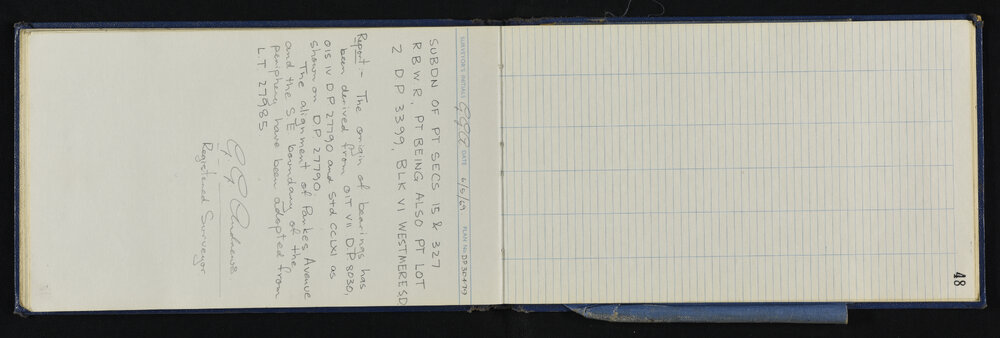 SURVEYOR'S INITIALS GGA DATE 6/5/69 PLAN No. DP
SUBDN OF PT SECS 15 & 327
RBWR, PT BEING ALSO PT LOT
2 DP 3399, BLK VI WESTMERE SD
Report:- The origin of bearings has
been derived from OIT VII DP 8030,
OIS IV DP 27790 and Std CCLXI as
shown on DP 27790.
The alignment of Parkes Avenue
and the S'E boundary of the
periphery have been adopted from
LT 27985
G. G. Andrews
Registered Surveyor
48